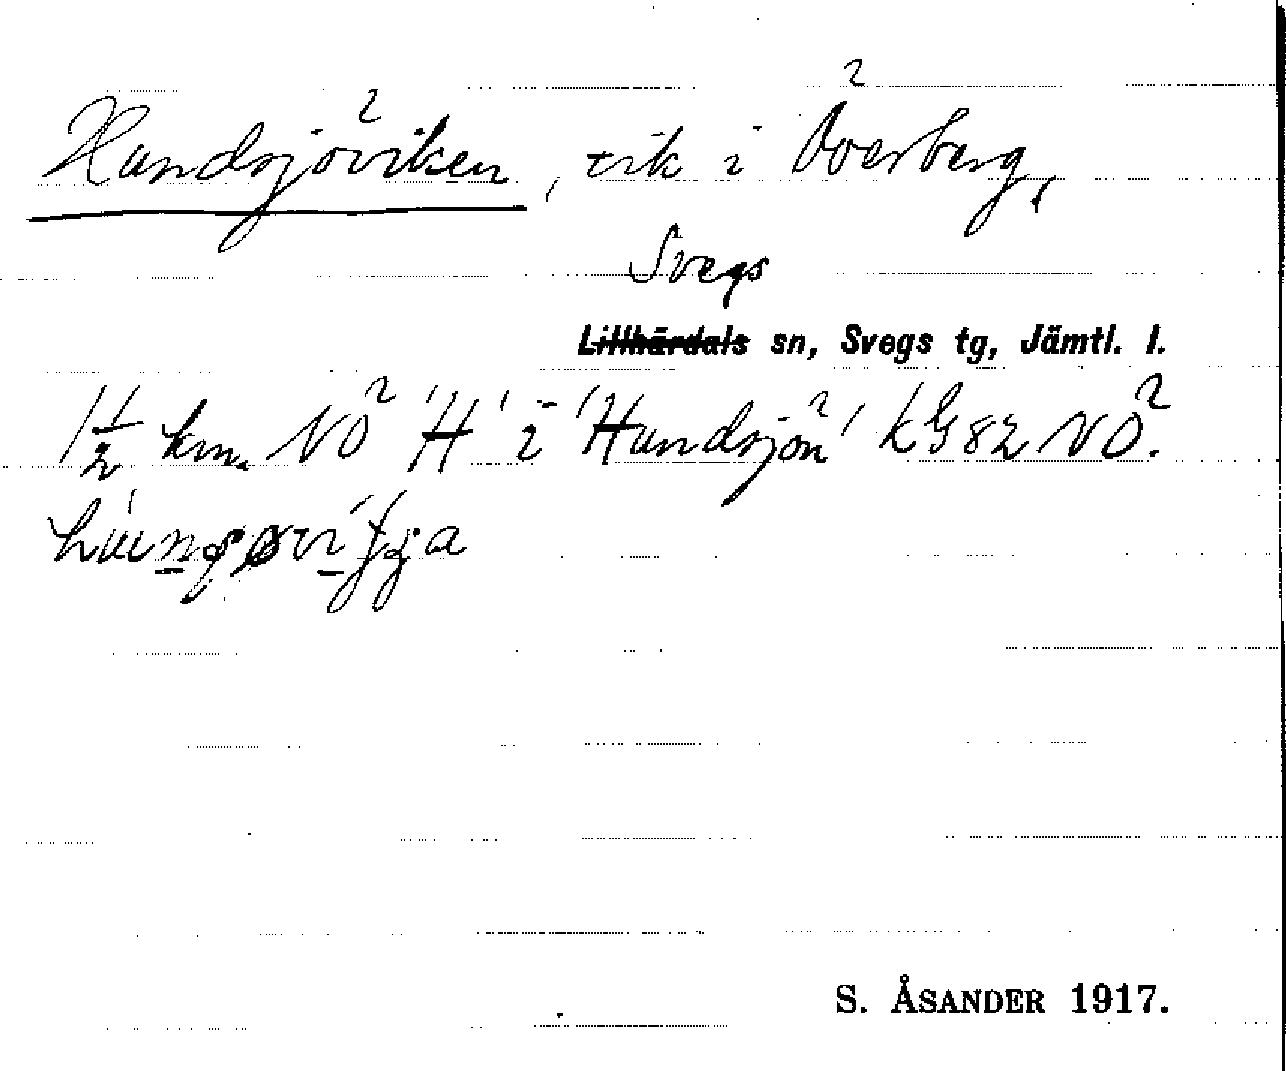 Hundsjöviken, vik i Överberg,
Svegs
Lillhärdals sn, Svegs tg, Jämtl. l.
1 1/2 km. NÖ 'H' i 'Hundsjön' kG82 NÖ.
S. ÅSANDER 1917.